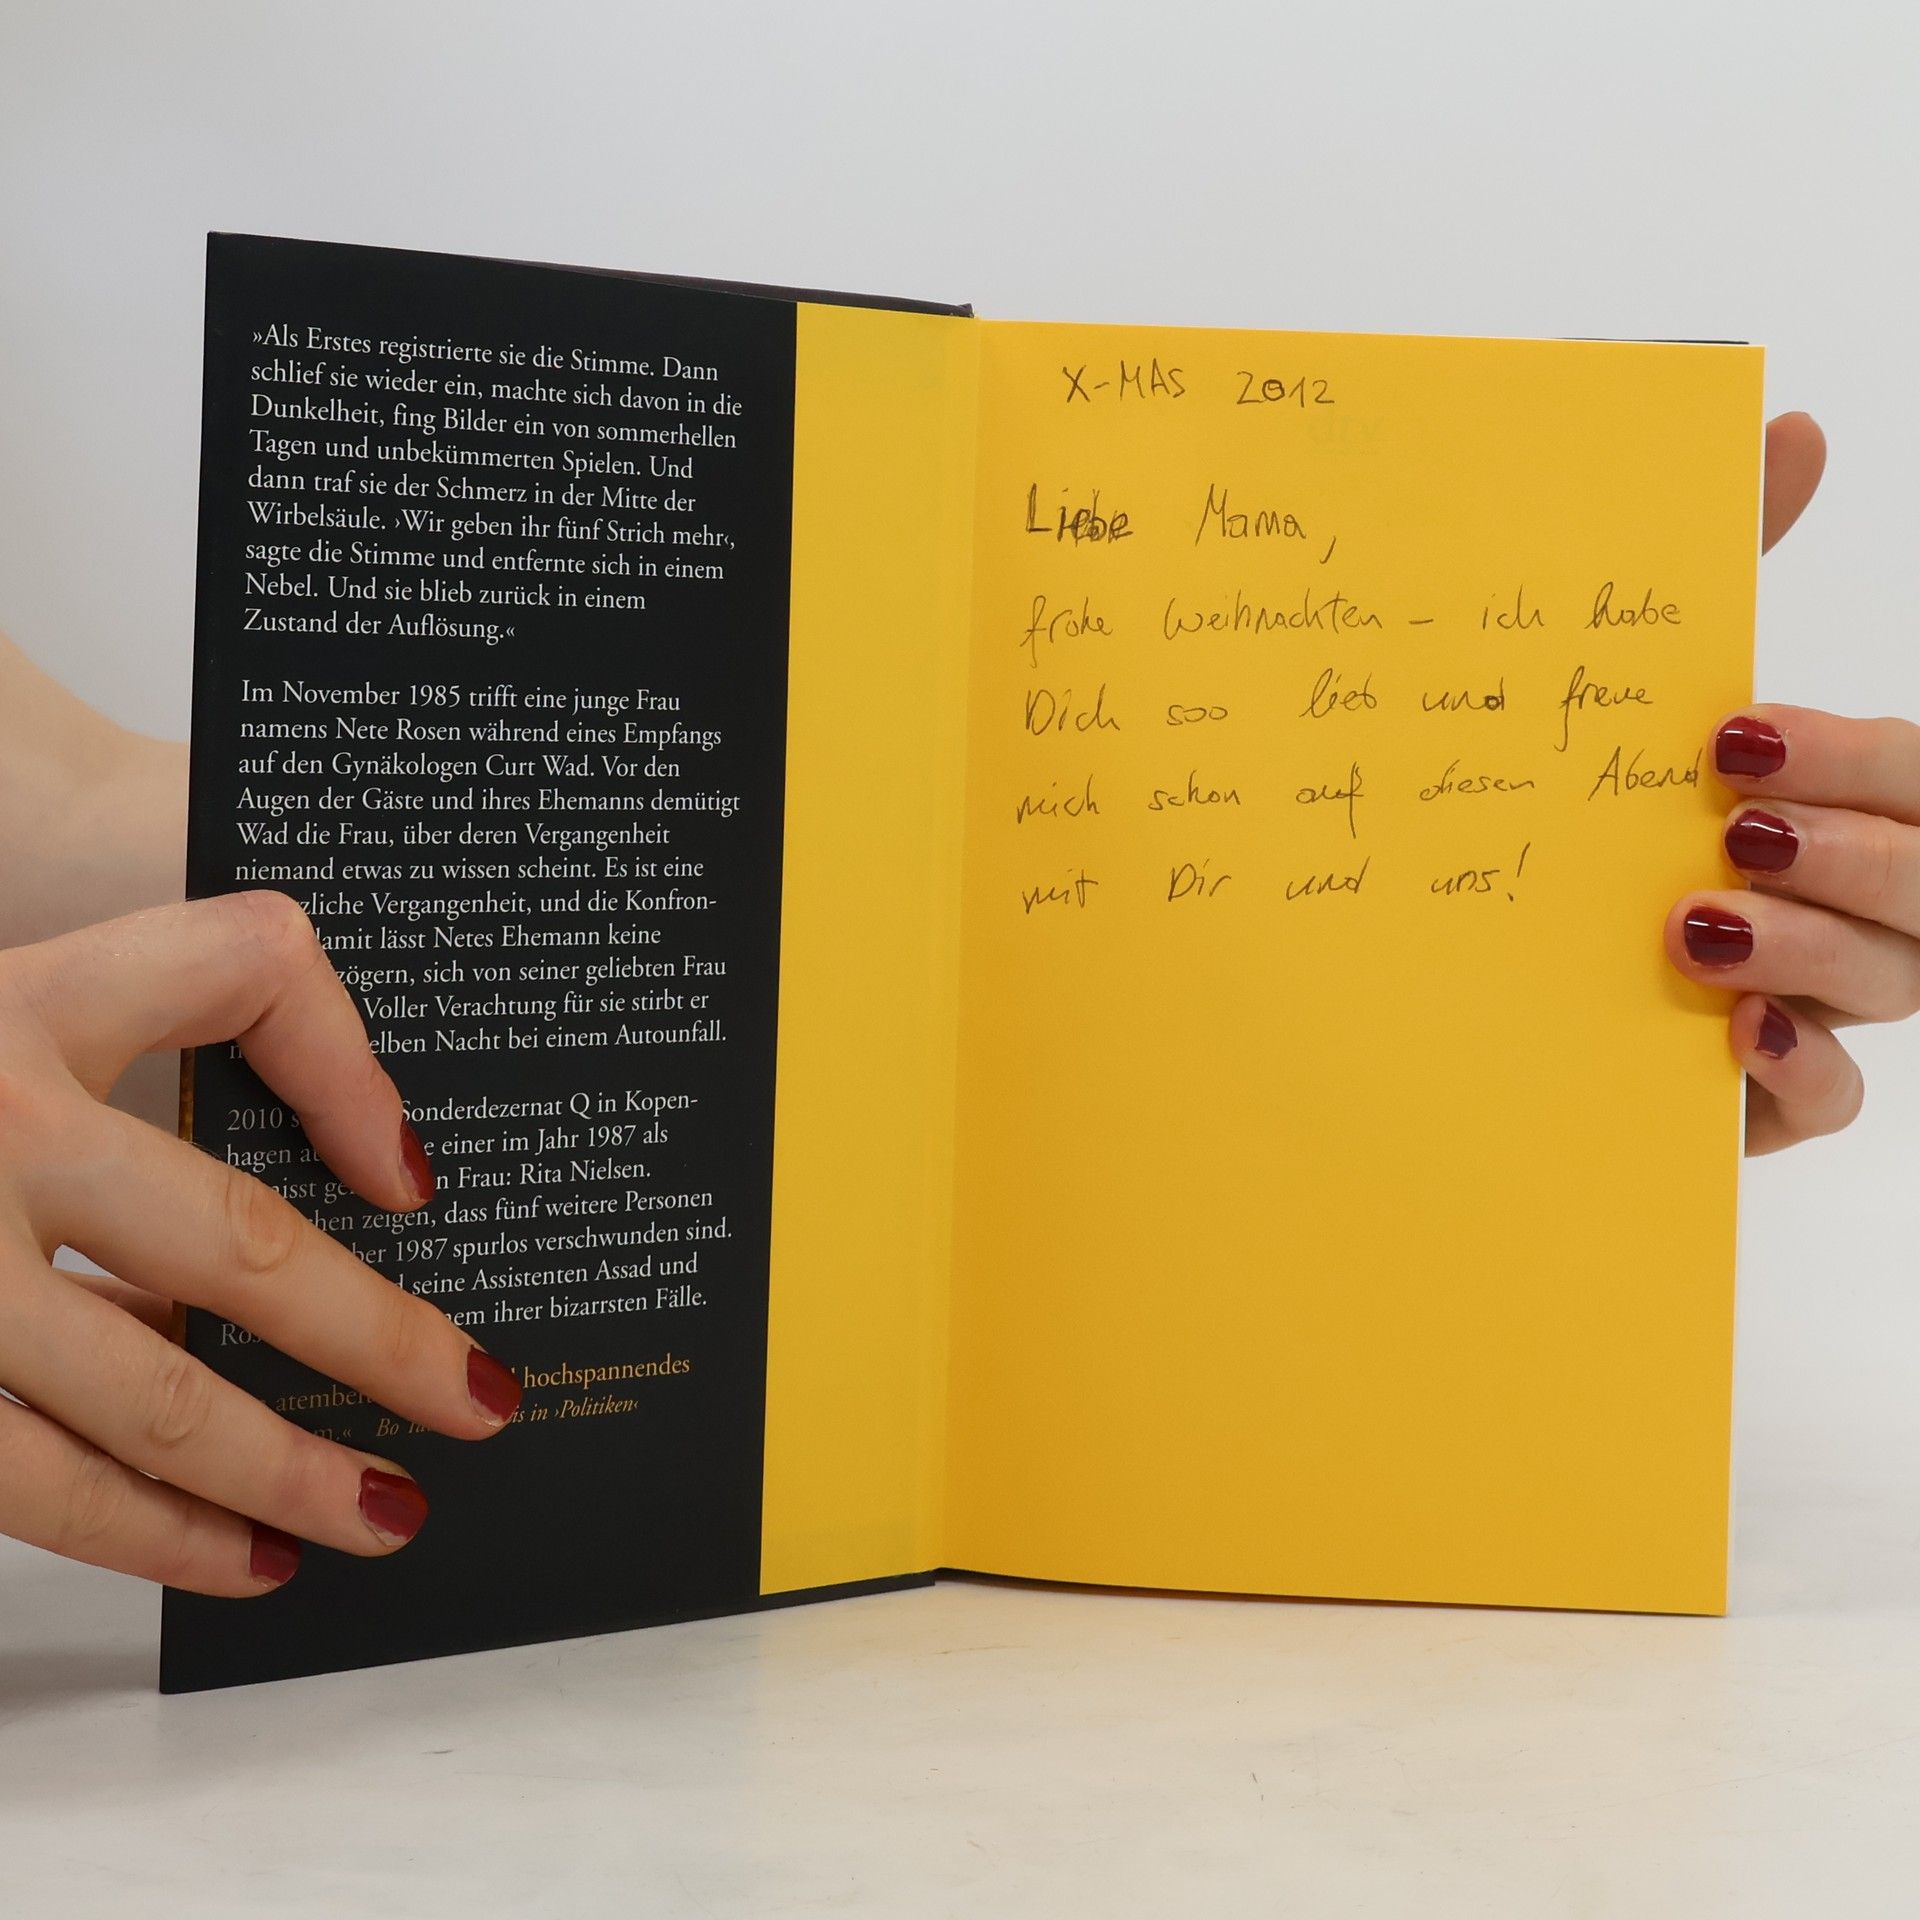 »Als Erstes registrierte sie die Stimme. Dann
schlief sie wieder ein, machte sich davon in die
Dunkelheit, fing Bilder ein von sommerhellen
Tagen und unbekümmerten Spielen. Und
dann traf sie der Schmerz in der Mitte der
Wirbelsäule. ›Wir geben ihr fünf Strich mehr‹,
sagte die Stimme und entfernte sich in einem
Nebel. Und sie blieb zurück in einem
Zustand der Auflösung.«
Im November 1985 trifft eine junge Frau
namens Nete Rosen während eines Empfangs
auf den Gynäkologen Curt Wad. Vor den
Augen der Gäste und ihres Ehemanns demütigt
Wad die Frau, über deren Vergangenheit
niemand etwas zu wissen scheint. Es ist eine
zliche Vergangenheit, und die Konfron-
amit lässt Netes Ehemann keine
zögern, sich von seiner geliebten Frau
Voller Verachtung für sie stirbt er
elben Nacht bei einem Autounfall.
2010 Sonderdezernat Q in Kopen-
hagen einer im Jahr 1987 als
n Frau: Rita Nielsen.
hen zeigen, dass fünf weitere Personen
ber 1987 spurlos verschwunden sind.
seine Assistenten Assad und
Ros em ihrer bizarrsten Fälle.
hochspannendes
Bo is in ›Politiken‹
X-MAS 2012
Liebe Mama,
frohe Weihnachten – ich habe
Dich soo lieb und freue
mich schon auf diesen Abend
mit Dir und uns!